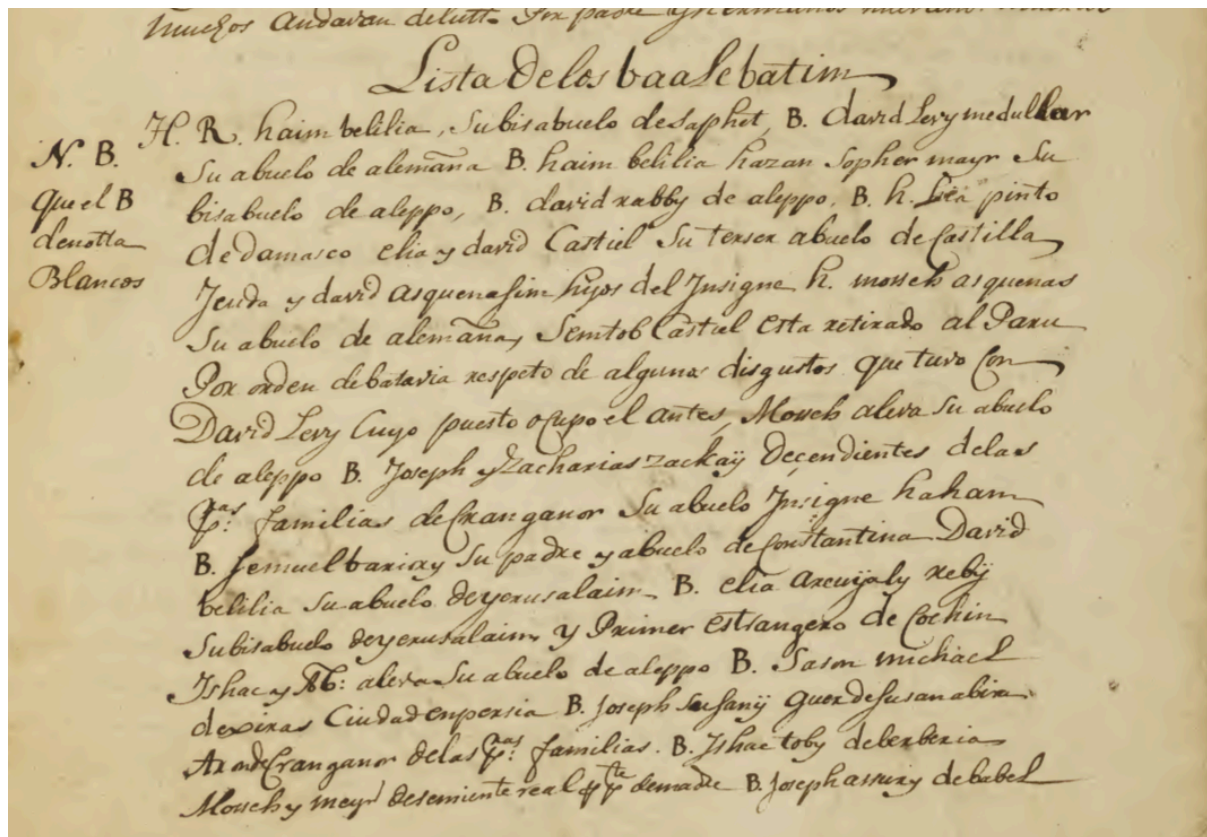 muchos andavan de lutto Por padre y hermanos
Lista de los baalebatim
H. R. haim belilia, Su bisabuelo de Saphet, B. david Levy medullar
N. B.
Su abuelo de alemaña B. haim belilia hazan Sopher mayr Su
que el B
bisabuelo de aleppo, B. david rabby de aleppo. B. h. Lea pinto
denotta
de Damasco elia y david Castiel Su terser abuelo de Castilla
Blancos
Jeuda y david asquenasim hijos del Insigne h. mosseh asquenas
Su abuelo de alemaña, Semtob Castiel esta retirado al Paru
Por orden de batavia respeto de algunos disgustos que tuvo Con
David Levy Cuyo puesto ocupo el antes, Mosseh aleva Su abuelo
de aleppo B. Joseph y Zacharias Zackaÿ Decendientes de las
pras. familias de Cranganor Su abuelo Insigne haham
B. Semuel Su padre y abuelo de Constantina David
belilia Su abuelo de yerusalaim B. elia rebÿ
Su bisabuelo de yerusalaim y Primer estrangero de Cochin
Ishac y aleva Su abuelo de aleppo B. Sason michael
de xiras Ciudad en persia B. Joseph guer de Susan abira
de Cranganor de las pras. familias. B. Ishac toby de berberia
Mosseh y meyr desemiente real de madre B. Joseph assury de babel